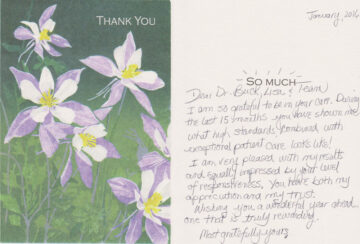 THANK YOU
SO MUCH
January, 2016
Dear Dr. Buck, Lisa & Team
I am so grateful to be in your care. During
the last 15 months you have shown me
what high standards combined with
exceptional patient care looks like!
I am very pleased with my results
and equally impressed by your level
of responsiveness. You have both my
appreciation and my trust.
Wishing you a wonderful year ahead
one that is truly rewarding.
Most gratefully yours